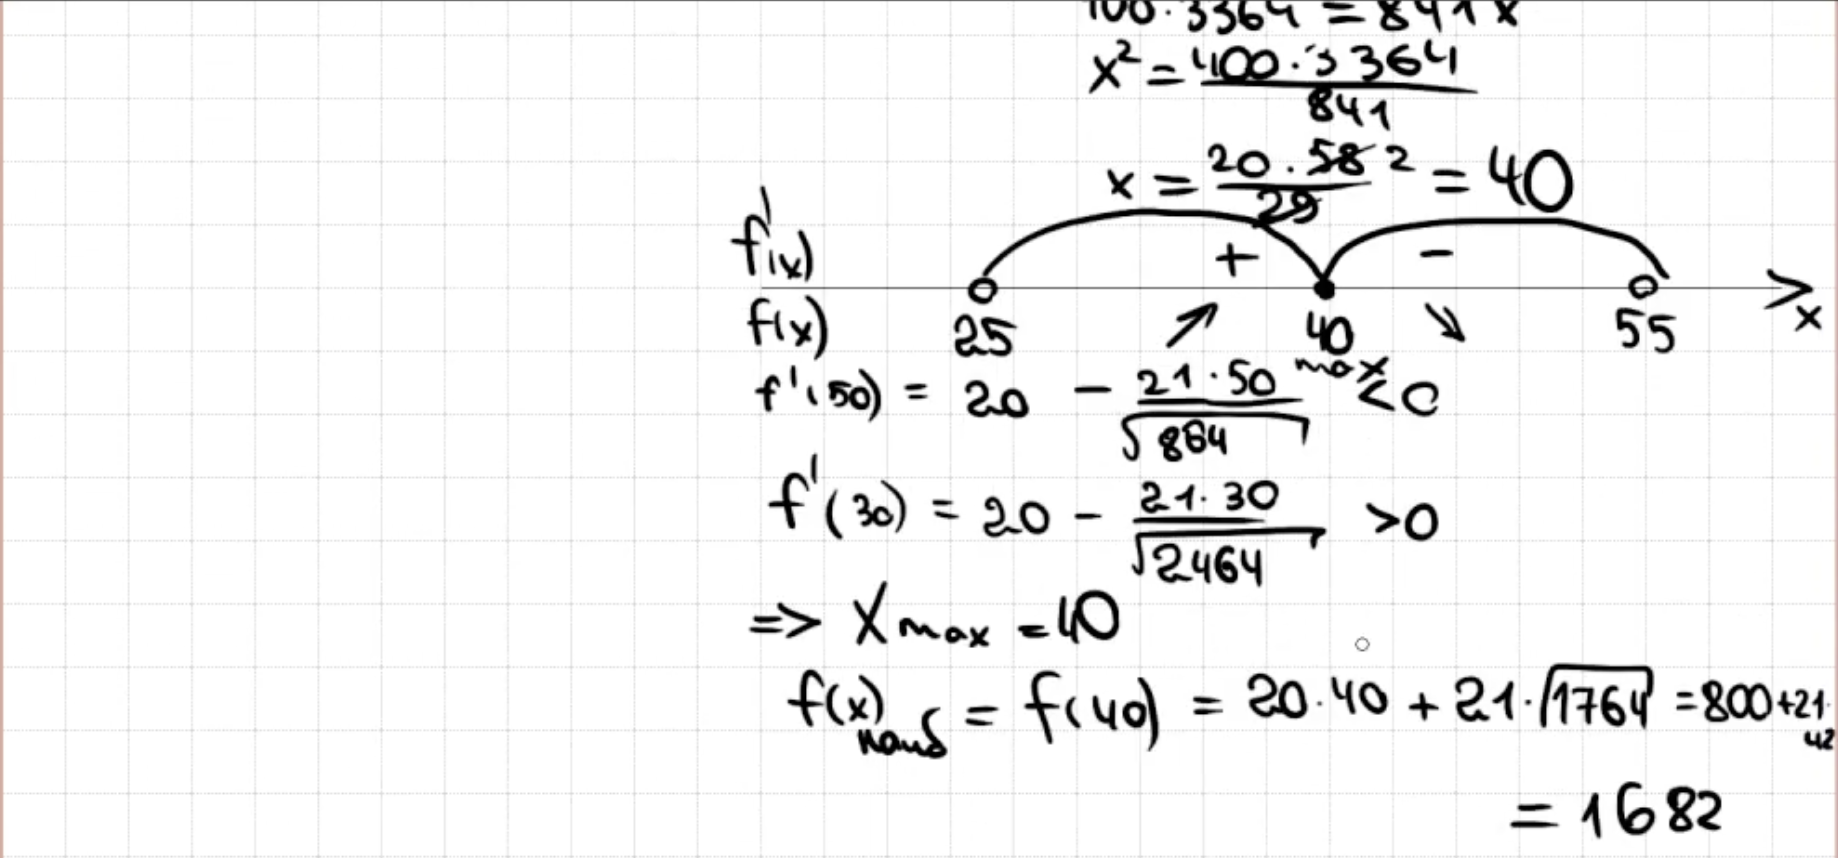 100·3364 = 841x
x² = 400·3364 / 841
x = 20·58 2 / 29 = 40
f'(x) + −
f(x) 25 40 55 x
max
f'(50) = 20 − 21·50 / √864 < 0
f'(30) = 20 − 21·30 / √2464 > 0
=> Xmax = 40
f(x)наиб = f(40) = 20·40 + 21·√1764 = 800+21·42
= 1682